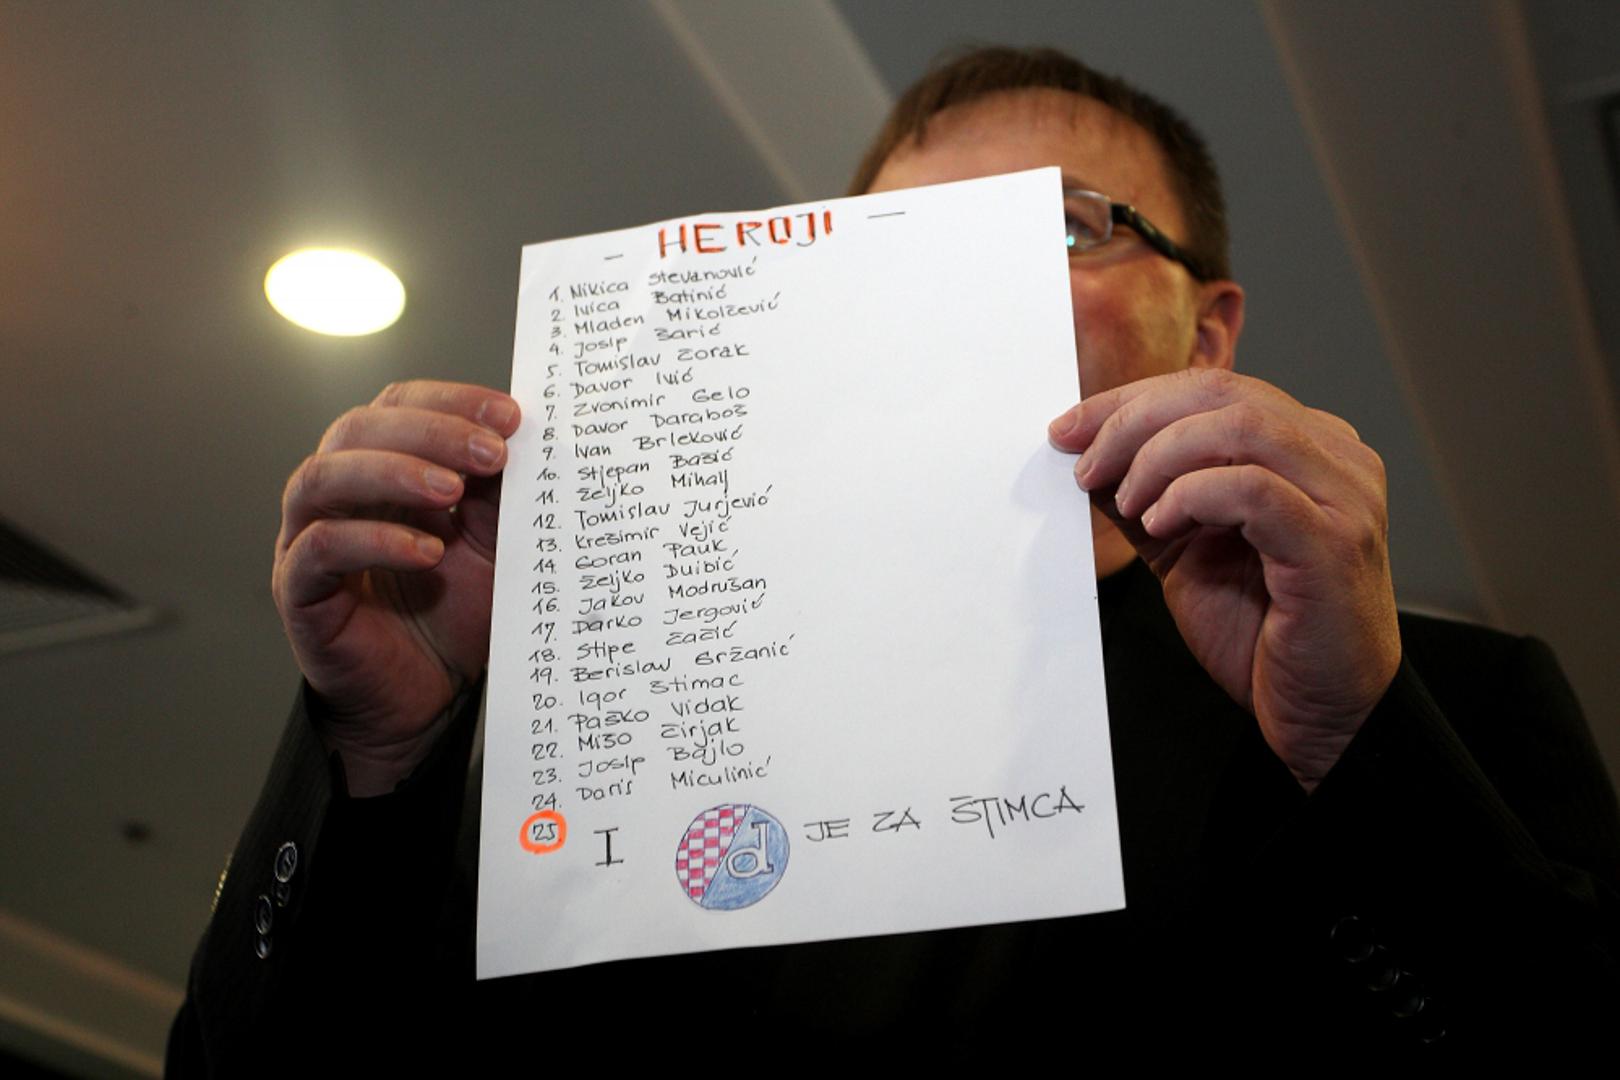 - HEROJI -
1. Nikica Stevanović
2. Ivica Batinić
3. Mladen Mikolčević
4. Josip Šarić
5. Tomislav Zorak
6. Davor Ivić
7. Zvonimir Gelo
8. Davor Daraboš
9. Ivan Brleković
10. Stjepan Bašić
11. Željko Mihalj
12. Tomislav Jurjević
13. Krešimir Vejić
14. Goran Pauk
15. Željko Duibić
16. Jakov Modrušan
17. Darko Jergović
18. Stipe
19. Berislav Gržanić
20. Igor Štimac
21. Paško Vidak
22. Mišo Žirjak
23. Josip Bajlo
24. Daris Miculinić
25 I d JE ZA ŠTIMCA